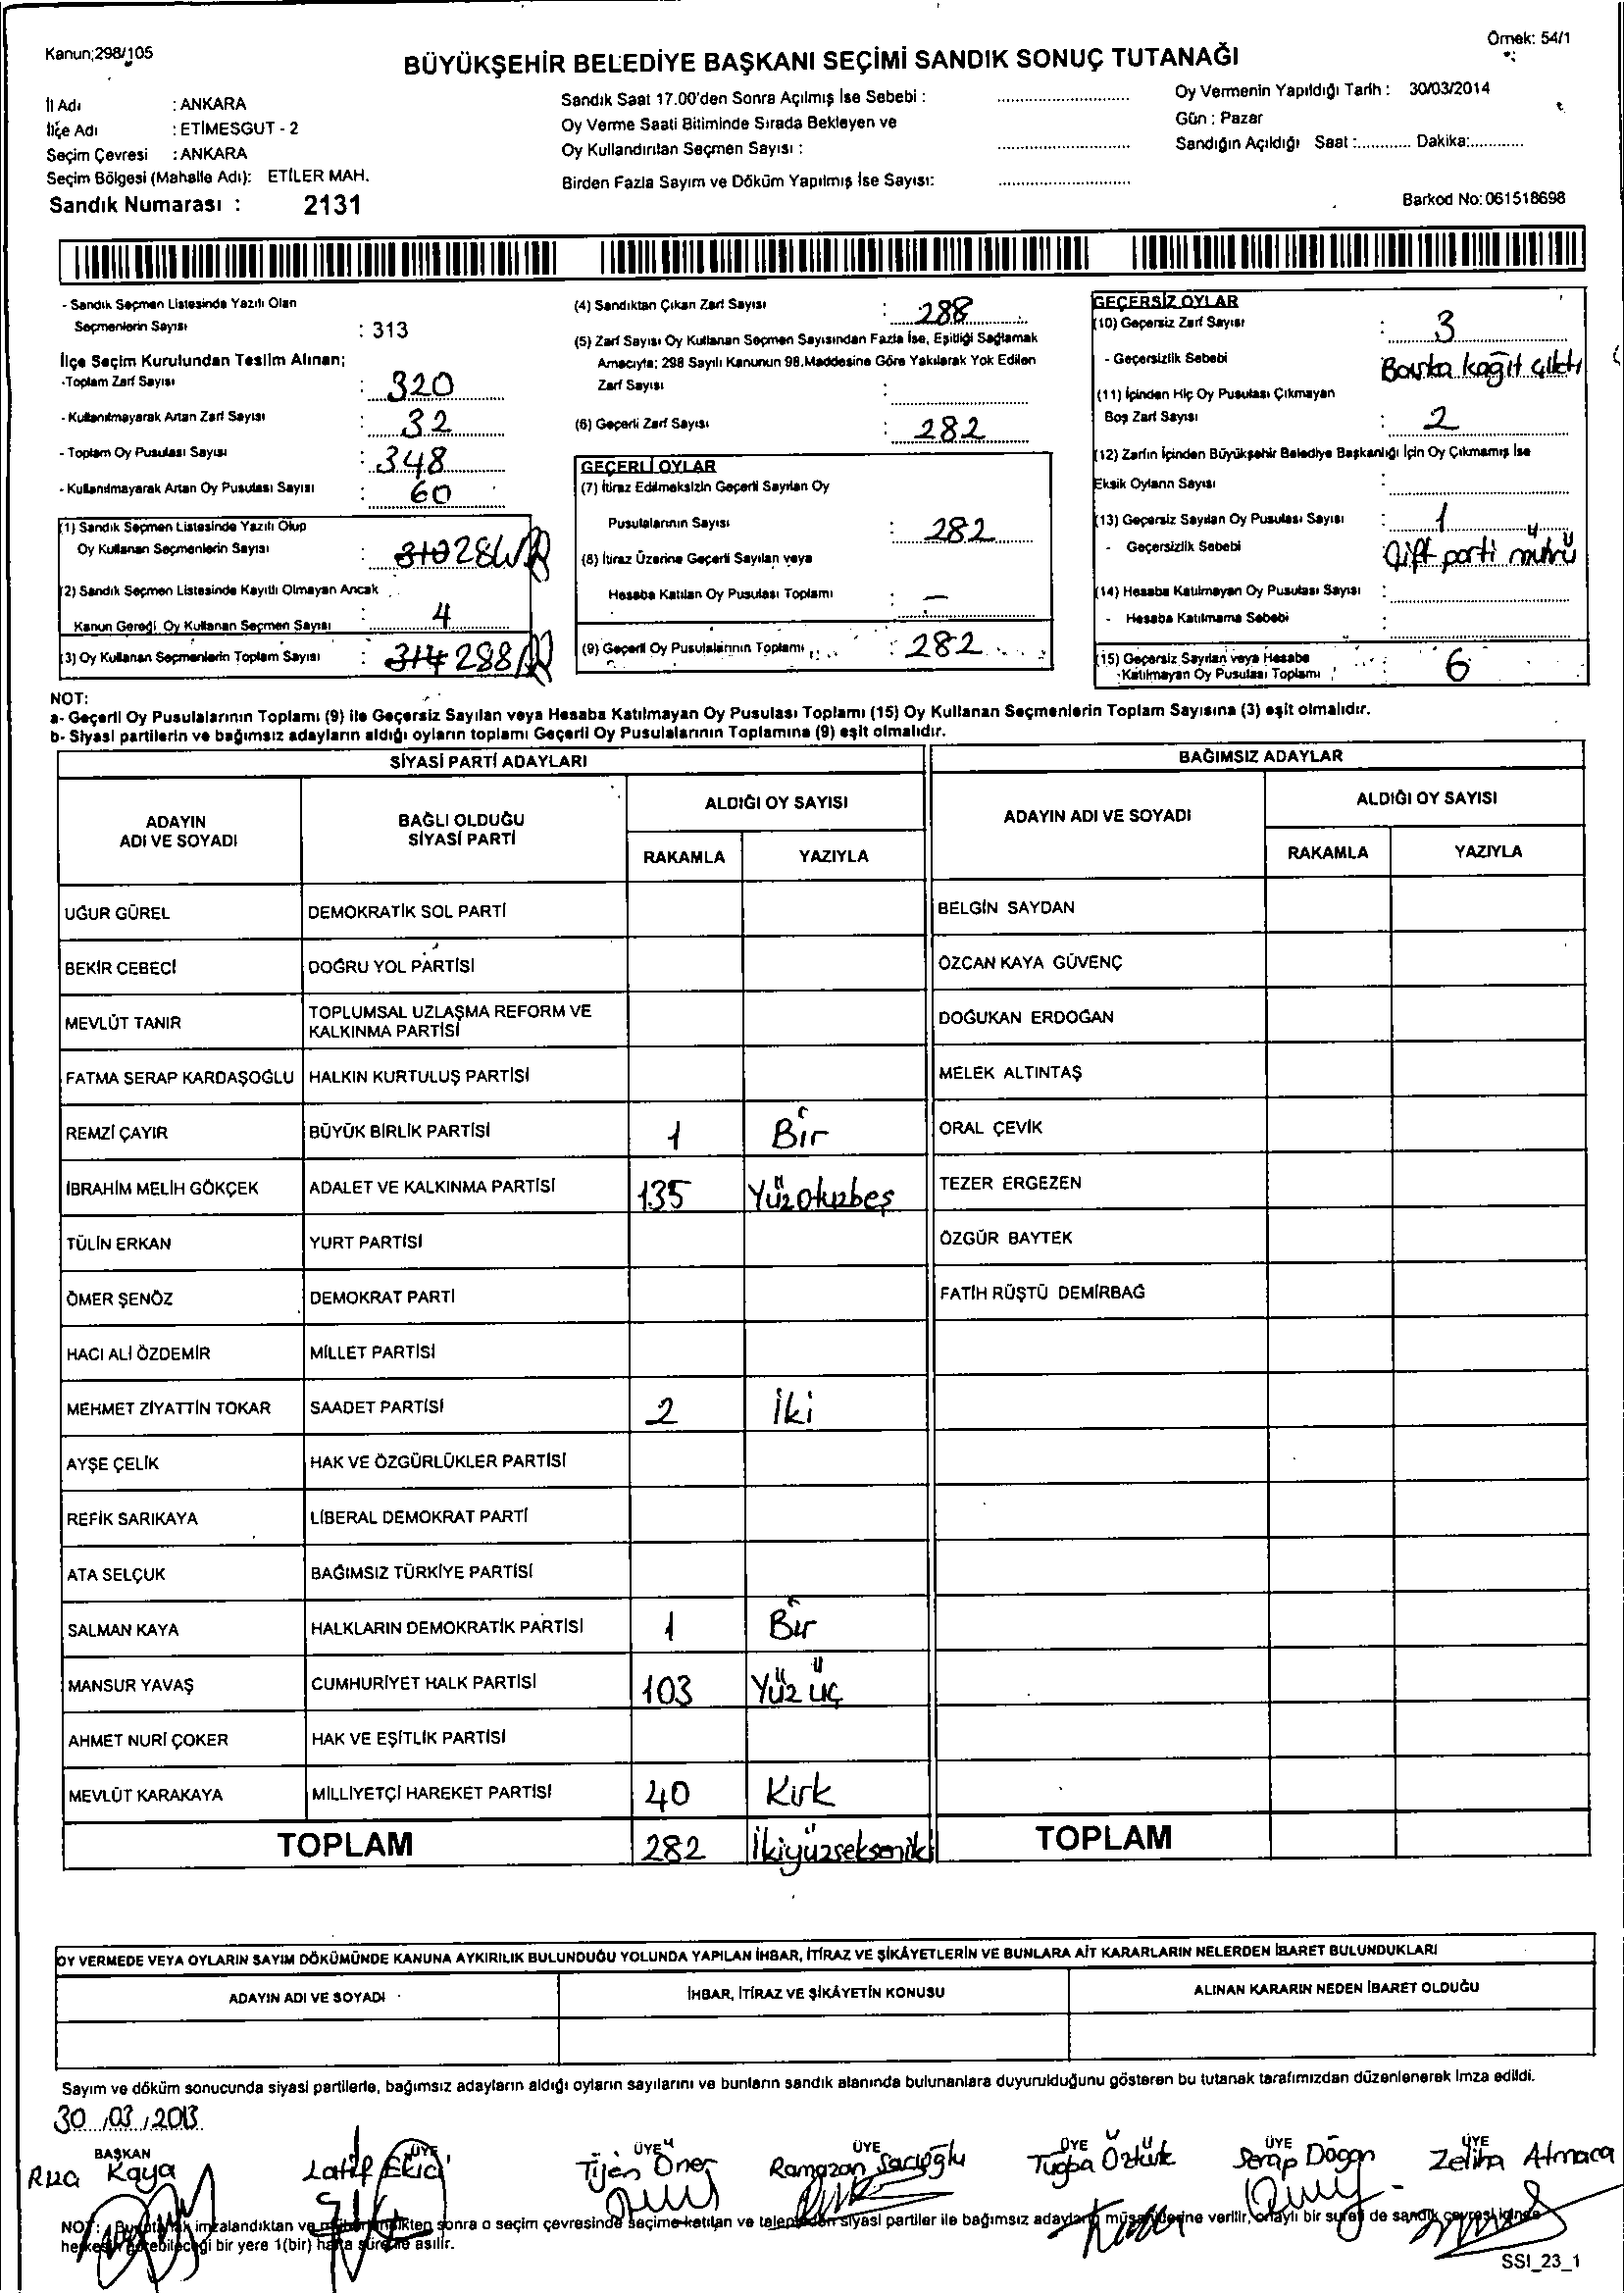 Kanun;298/105
Örnek: 54/1
BÜYÜKŞEHİR BELEDİYE BAŞKANI SEÇİMİ SANDIK SONUÇ TUTANAĞI
İl Adı : ANKARA
İlçe Adı : ETİMESGUT - 2
Seçim Çevresi : ANKARA
Seçim Bölgesi (Mahalle Adı): ETİLER MAH.
Sandık Numarası : 2131
Sandık Saat 17.00'den Sonra Açılmış İse Sebebi :
Oy Verme Saati Bitiminde Sırada Bekleyen ve
Oy Kullandırılan Seçmen Sayısı :
Birden Fazla Sayım ve Döküm Yapılmış İse Sayısı:
Oy Vermenin Yapıldığı Tarih : 30/03/2014
Gün : Pazar
Sandığın Açıldığı Saat :............ Dakika:............
Barkod No: 061518698
- Sandık Seçmen Listesinde Yazılı Olan
Seçmenlerin Sayısı : 313
İlçe Seçim Kurulundan Teslim Alınan;
-Toplam Zarf Sayısı : 320
- Kullanılmayarak Artan Zarf Sayısı : 32
- Toplam Oy Pusulası Sayısı : 348
- Kullanılmayarak Artan Oy Pusulası Sayısı : 60
(1) Sandık Seçmen Listesinde Yazılı Olup
Oy Kullanan Seçmenlerin Sayısı : 310 284
(2) Sandık Seçmen Listesinde Kayıtlı Olmayan Ancak
Kanun Gereği Oy Kullanan Seçmen Sayısı : 4
(3) Oy Kullanan Seçmenlerin Toplam Sayısı : 314 288
(4) Sandıktan Çıkan Zarf Sayısı : 288
(5) Zarf Sayısı Oy Kullanan Seçmen Sayısından Fazla İse, Eşitliği Sağlamak
Amacıyla; 298 Sayılı Kanunun 98.Maddesine Göre Yakılarak Yok Edilen
Zarf Sayısı :
(6) Geçerli Zarf Sayısı : 282
GEÇERLİ OYLAR
(7) İtiraz Edilmeksizin Geçerli Sayılan Oy
Pusulalarının Sayısı : 282
(8) İtiraz Üzerine Geçerli Sayılan veya
Hesaba Katılan Oy Pusulası Toplamı : -
(9) Geçerli Oy Pusulalarının Toplamı : 282
GEÇERSİZ OYLAR
(10) Geçersiz Zarf Sayısı : 3
- Geçersizlik Sebebi Başka kağıt çıktı
(11) İçinden Hiç Oy Pusulası Çıkmayan
Boş Zarf Sayısı : 2
(12) Zarfın İçinden Büyükşehir Belediye Başkanlığı İçin Oy Çıkmamış İse
Eksik Oyların Sayısı :
(13) Geçersiz Sayılan Oy Pusulası Sayısı : 1
- Geçersizlik Sebebi Çift parti mührü
(14) Hesaba Katılmayan Oy Pusulası Sayısı :
- Hesaba Katılmama Sebebi :
(15) Geçersiz Sayılan veya Hesaba
Katılmayan Oy Pusulası Toplamı : 6
NOT:
a- Geçerli Oy Pusulalarının Toplamı (9) ile Geçersiz Sayılan veya Hesaba Katılmayan Oy Pusulası Toplamı (15) Oy Kullanan Seçmenlerin Toplam Sayısına (3) eşit olmalıdır.
b- Siyasi partilerin ve bağımsız adayların aldığı oyların toplamı Geçerli Oy Pusulalarının Toplamına (9) eşit olmalıdır.
SİYASİ PARTİ ADAYLARI
BAĞIMSIZ ADAYLAR
ADAYIN
ADI VE SOYADI
BAĞLI OLDUĞU
SİYASİ PARTİ
ALDIĞI OY SAYISI
RAKAMLA YAZIYLA
ADAYIN ADI VE SOYADI
ALDIĞI OY SAYISI
RAKAMLA YAZIYLA
UĞUR GÜREL DEMOKRATİK SOL PARTİ BELGİN SAYDAN
BEKİR CEBECİ DOĞRU YOL PARTİSİ ÖZCAN KAYA GÜVENÇ
MEVLÜT TANIR TOPLUMSAL UZLAŞMA REFORM VE
KALKINMA PARTİSİ DOĞUKAN ERDOĞAN
FATMA SERAP KARDAŞOĞLU HALKIN KURTULUŞ PARTİSİ MELEK ALTINTAŞ
REMZİ ÇAYIR BÜYÜK BİRLİK PARTİSİ 1 Bir ORAL ÇEVİK
İBRAHİM MELİH GÖKÇEK ADALET VE KALKINMA PARTİSİ 135 Yüzotuzbeş TEZER ERGEZEN
TÜLİN ERKAN YURT PARTİSİ ÖZGÜR BAYTEK
ÖMER ŞENÖZ DEMOKRAT PARTİ FATİH RÜŞTÜ DEMİRBAĞ
HACI ALİ ÖZDEMİR MİLLET PARTİSİ
MEHMET ZİYATTİN TOKAR SAADET PARTİSİ 2 İki
AYŞE ÇELİK HAK VE ÖZGÜRLÜKLER PARTİSİ
REFİK SARIKAYA LİBERAL DEMOKRAT PARTİ
ATA SELÇUK BAĞIMSIZ TÜRKİYE PARTİSİ
SALMAN KAYA HALKLARIN DEMOKRATİK PARTİSİ 1 Bir
MANSUR YAVAŞ CUMHURİYET HALK PARTİSİ 103 Yüz üç
AHMET NURİ ÇOKER HAK VE EŞİTLİK PARTİSİ
MEVLÜT KARAKAYA MİLLİYETÇİ HAREKET PARTİSİ 40 Kırk
TOPLAM 282 İkiyüzsekseniki TOPLAM
OY VERMEDE VEYA OYLARIN SAYIM DÖKÜMÜNDE KANUNA AYKIRILIK BULUNDUĞU YOLUNDA YAPILAN İHBAR, İTİRAZ VE ŞİKÂYETLERİN VE BUNLARA AİT KARARLARIN NELERDEN İBARET BULUNDUKLARI
ADAYIN ADI VE SOYADI İHBAR, İTİRAZ VE ŞİKÂYETİN KONUSU ALINAN KARARIN NEDEN İBARET OLDUĞU
Sayım ve döküm sonucunda siyasi partilerle, bağımsız adayların aldığı oyların sayılarını ve bunların sandık alanında bulunanlara duyurulduğunu gösteren bu tutanak tarafımızdan düzenlenerek imza edildi.
30/03/2013
BAŞKAN ÜYE ÜYE ÜYE ÜYE ÜYE ÜYE
Rıza Kaya Latif Ekici Tijen Öner Ramazan Tuğba Öztürk Serap Doğan Zeliha Atmaca
NOT: Bu tutanak imzalandıktan ve mühürlendikten sonra o seçim çevresinde seçime katılan ve talep eden siyasi partiler ile bağımsız adayların müşahitlerine verilir, onaylı bir sureti de sandık çevresi içinde
herkesin görebileceği bir yere 1(bir) hafta süre ile asılır.
SSI_23_1